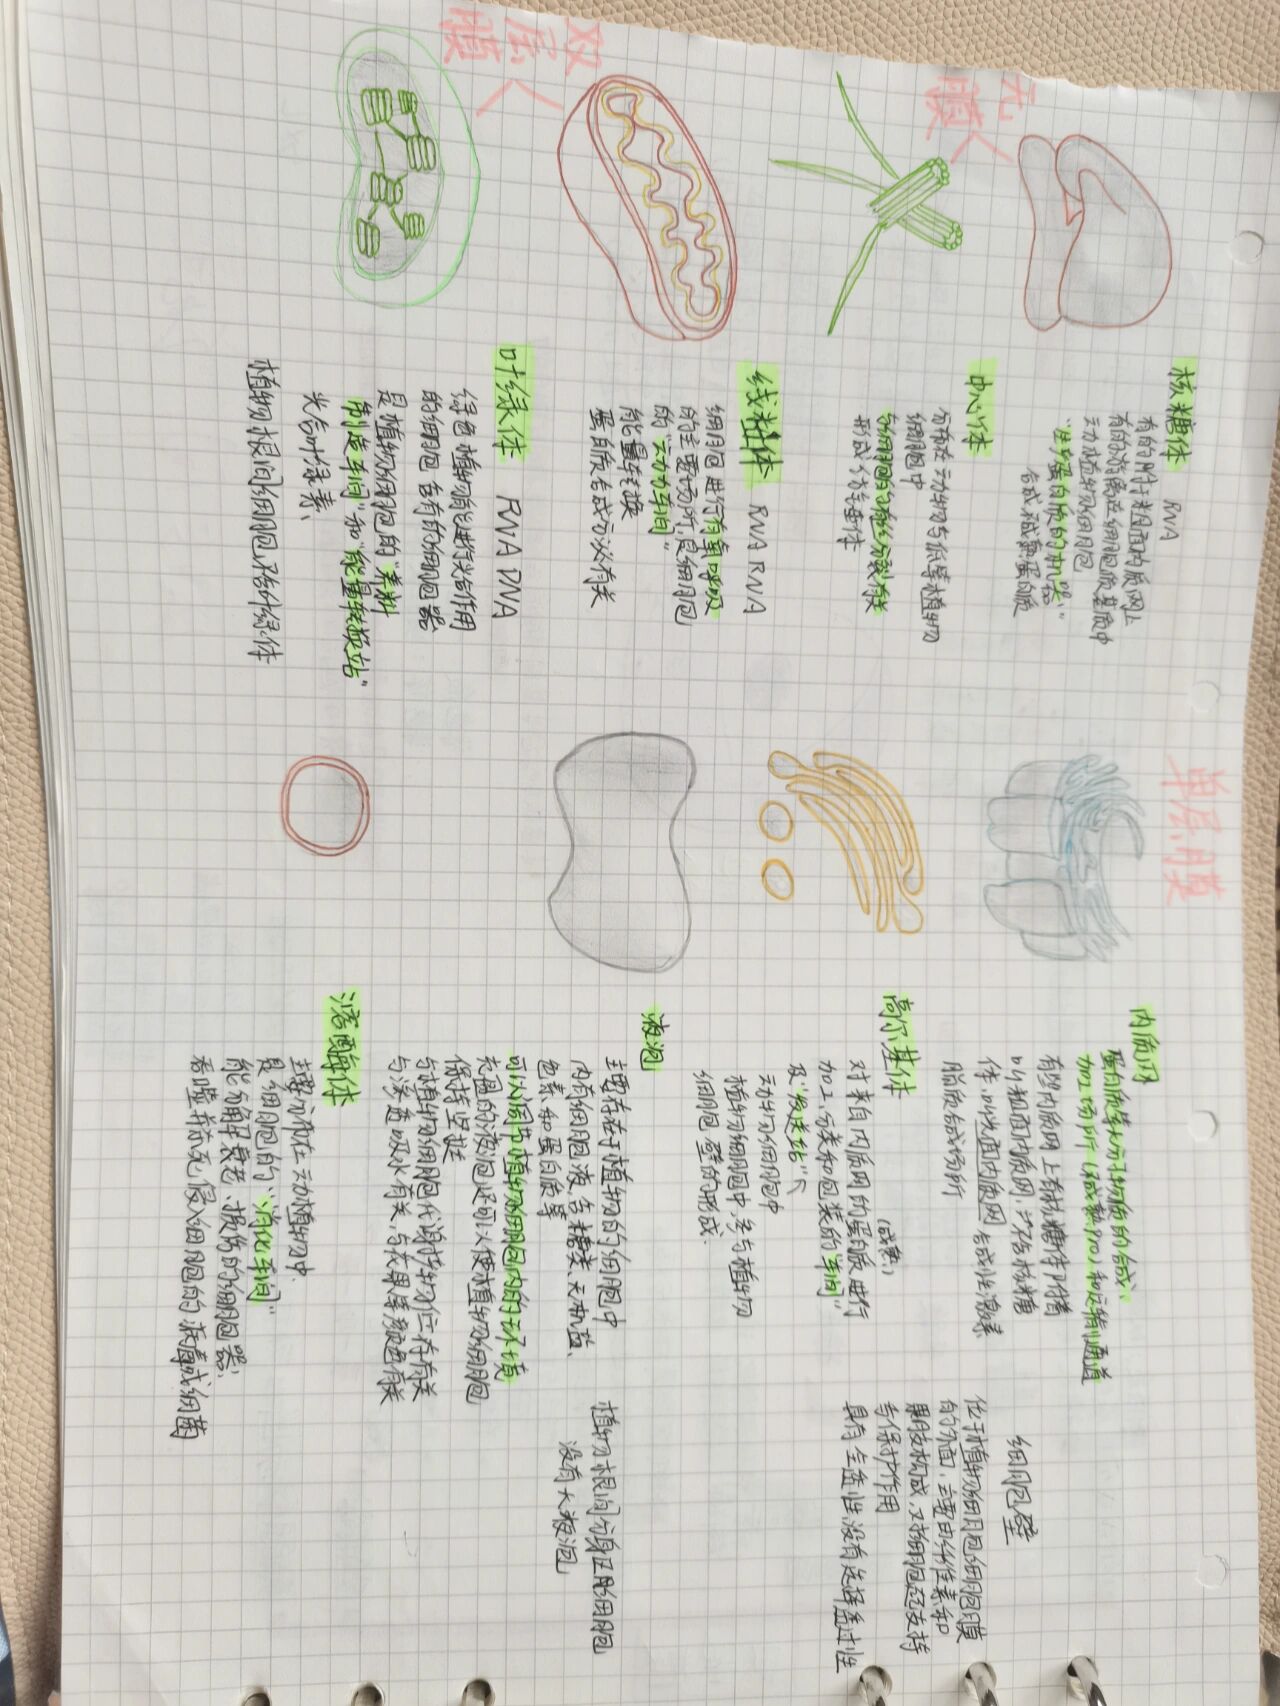 无膜
核糖体 RNA
有的附于粗面内质网上
有的游离在细胞质基质中
动植物细胞
"生产蛋白质的机器"
合成 蛋白质
中心体
分布在动物与低等植物
细胞中
与细胞的有丝分裂有关
形成纺锤体
双层膜
线粒体 RNA RNA
细胞进行有氧呼吸
的主要场所,是细胞
的"动力车间"
能量转换
蛋白质合成 有关
叶绿体 RNA DNA
绿色植物能进行光合作用
的细胞含有的细胞器
是植物细胞的"养料
制造车间"和"能量转换站"
光合叶绿素、
植物根间细胞 绿体
单层膜
内质网
蛋白质等大分子物质的合成、
加工场所(不成熟Pro)和运输通道
有的内质网上有核糖体附着
叫粗面内质网,不含核糖
体,叫光面内质网 合成性激素
脂质合成场所
高尔基体
(成熟)
对来自内质网的蛋白质进行
加工、分类和包装的"车间"
及"发送站"
动物细胞中
植物细胞中,参与植物
细胞壁的形成.
液泡
主要存在于植物的细胞中
内有细胞液,含糖类、无机盐、
色素和蛋白质等
可以调节植物细胞内的环境
充盈的液泡还可以使植物细胞
保持坚挺
与植物细胞代谢 有关
与渗透吸水有关,与衣果等颜色有关
植物根间分身区胎细胞
没有大液泡
溶酶体
主要分布在动植物中.
是细胞的"消化车间"
能分解衰老、损伤的细胞器;
吞噬并杀死侵入细胞的病毒或细菌
细胞壁
位于植物细胞细胞膜
的外面,主要由纤维素和
果胶构成,对细胞起支持
与保护作用
具有全透性没有选择透过性